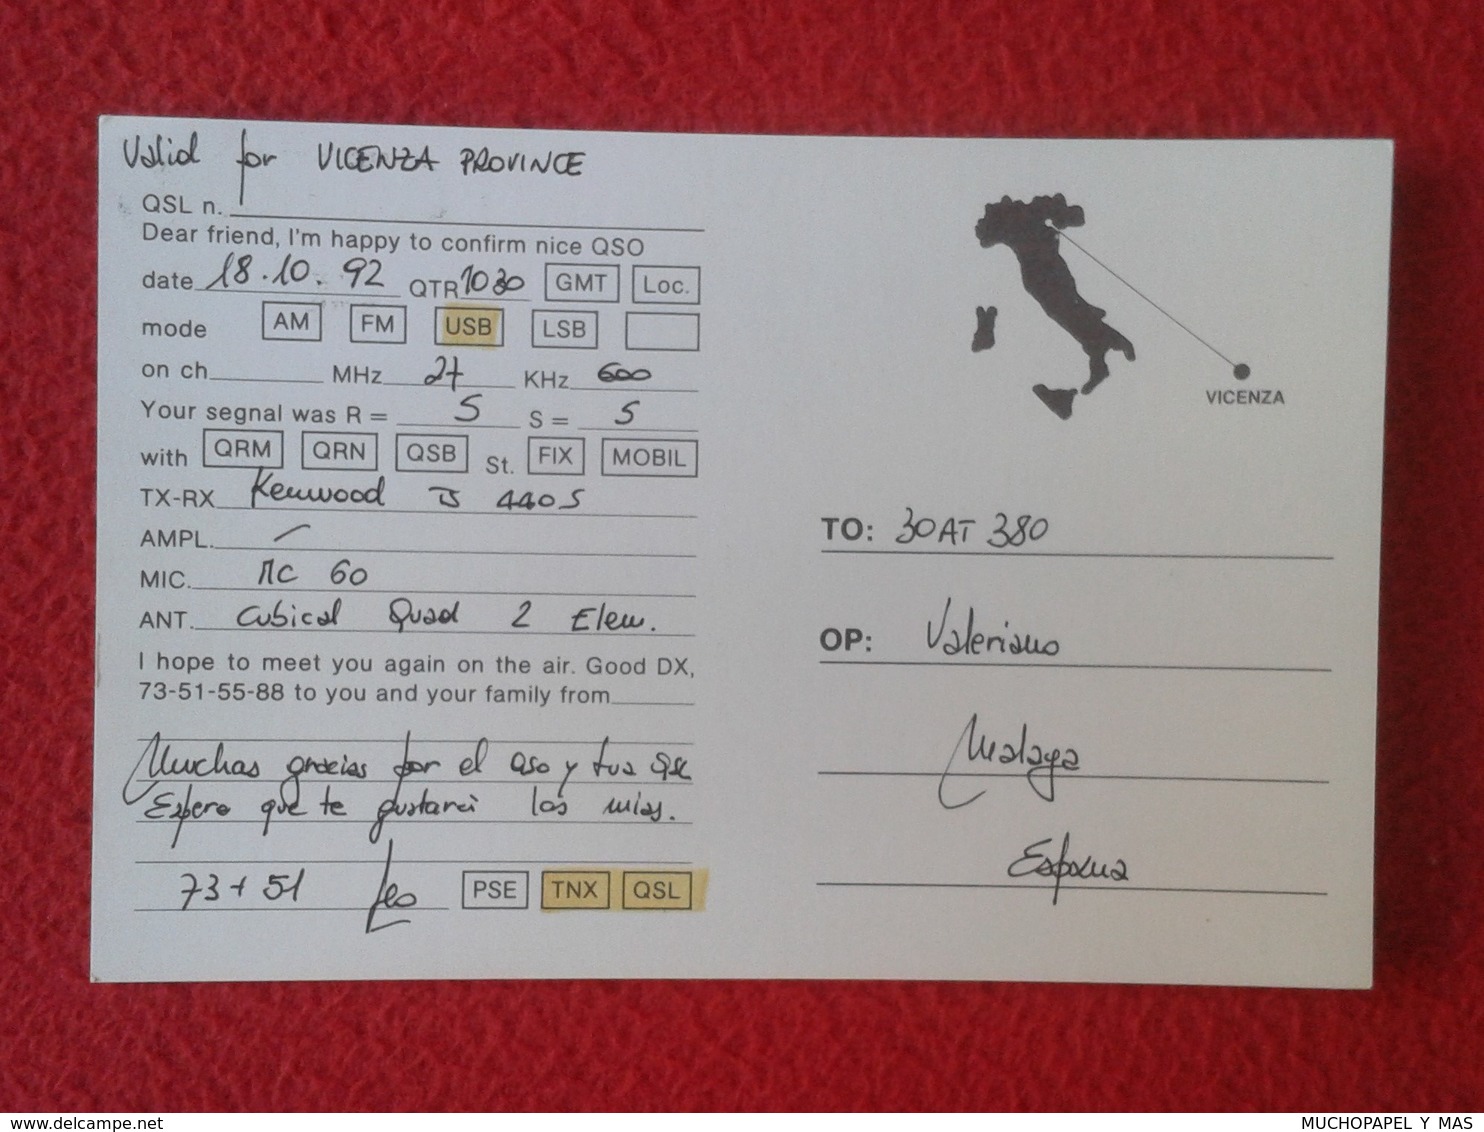 Valid for VICENZA PROVINCE
QSL n.
Dear friend, I'm happy to confirm nice QSO
date 18.10.92 QTR 1030 GMT Loc.
mode AM FM USB LSB
on ch MHz 27 KHz 600
Your segnal was R = 5 S = 5
with QRM QRN QSB St. FIX MOBIL
TX-RX Kenwood TS 440S
AMPL. /
MIC. MC 60
ANT. Cubical Quad 2 Elem.
I hope to meet you again on the air. Good DX,
73-51-55-88 to you and your family from
Muchas gracias por el QSO y tua QSL
Espero que te gustarei las mias.
73+51 Leo PSE TNX QSL
VICENZA
TO: 30AT 380
OP: Valeriano
Malaga
España
delcampe.net
MUCHOPAPEL Y MAS